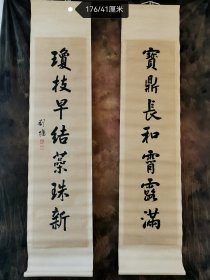 176/41厘米
寶鼎長和霄露滿
瓊枝早結蕊珠新